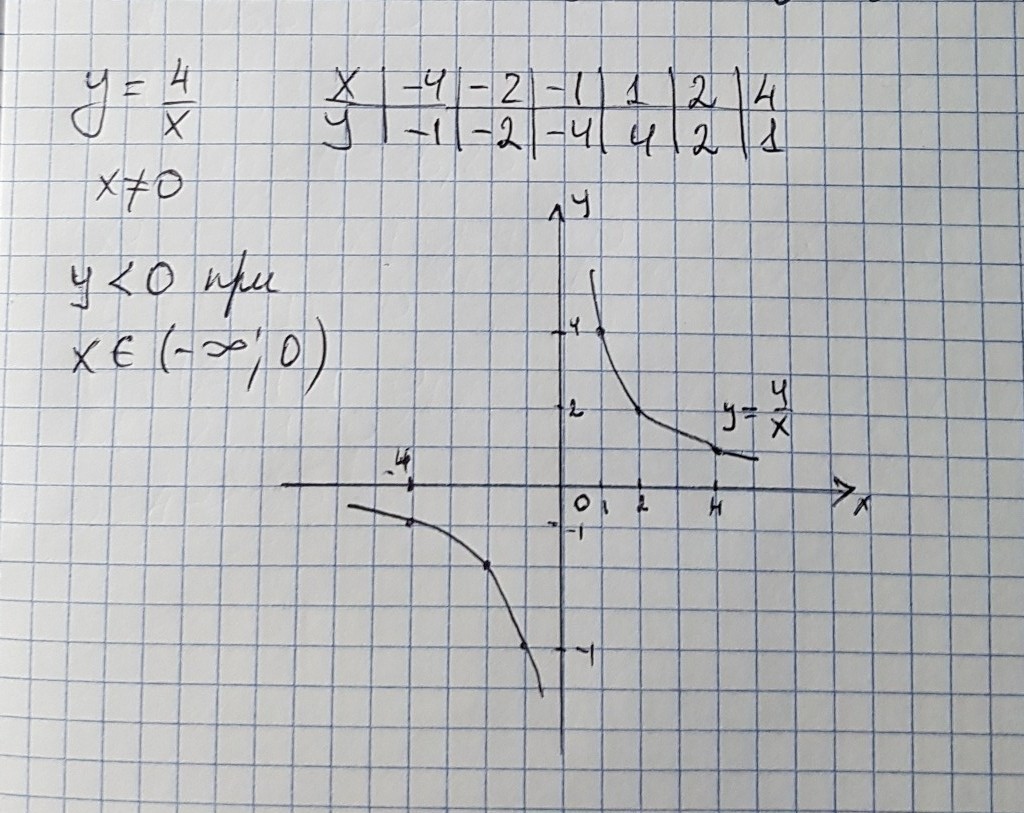 y = 4/x
x | -4 | -2 | -1 | 1 | 2 | 4
y | -1 | -2 | -4 | 4 | 2 | 1
x ≠ 0
y < 0 при
x ∈ (-∞; 0)
y
4
2
y = 4/x
-4
0 1 2 4 x
-1
-4